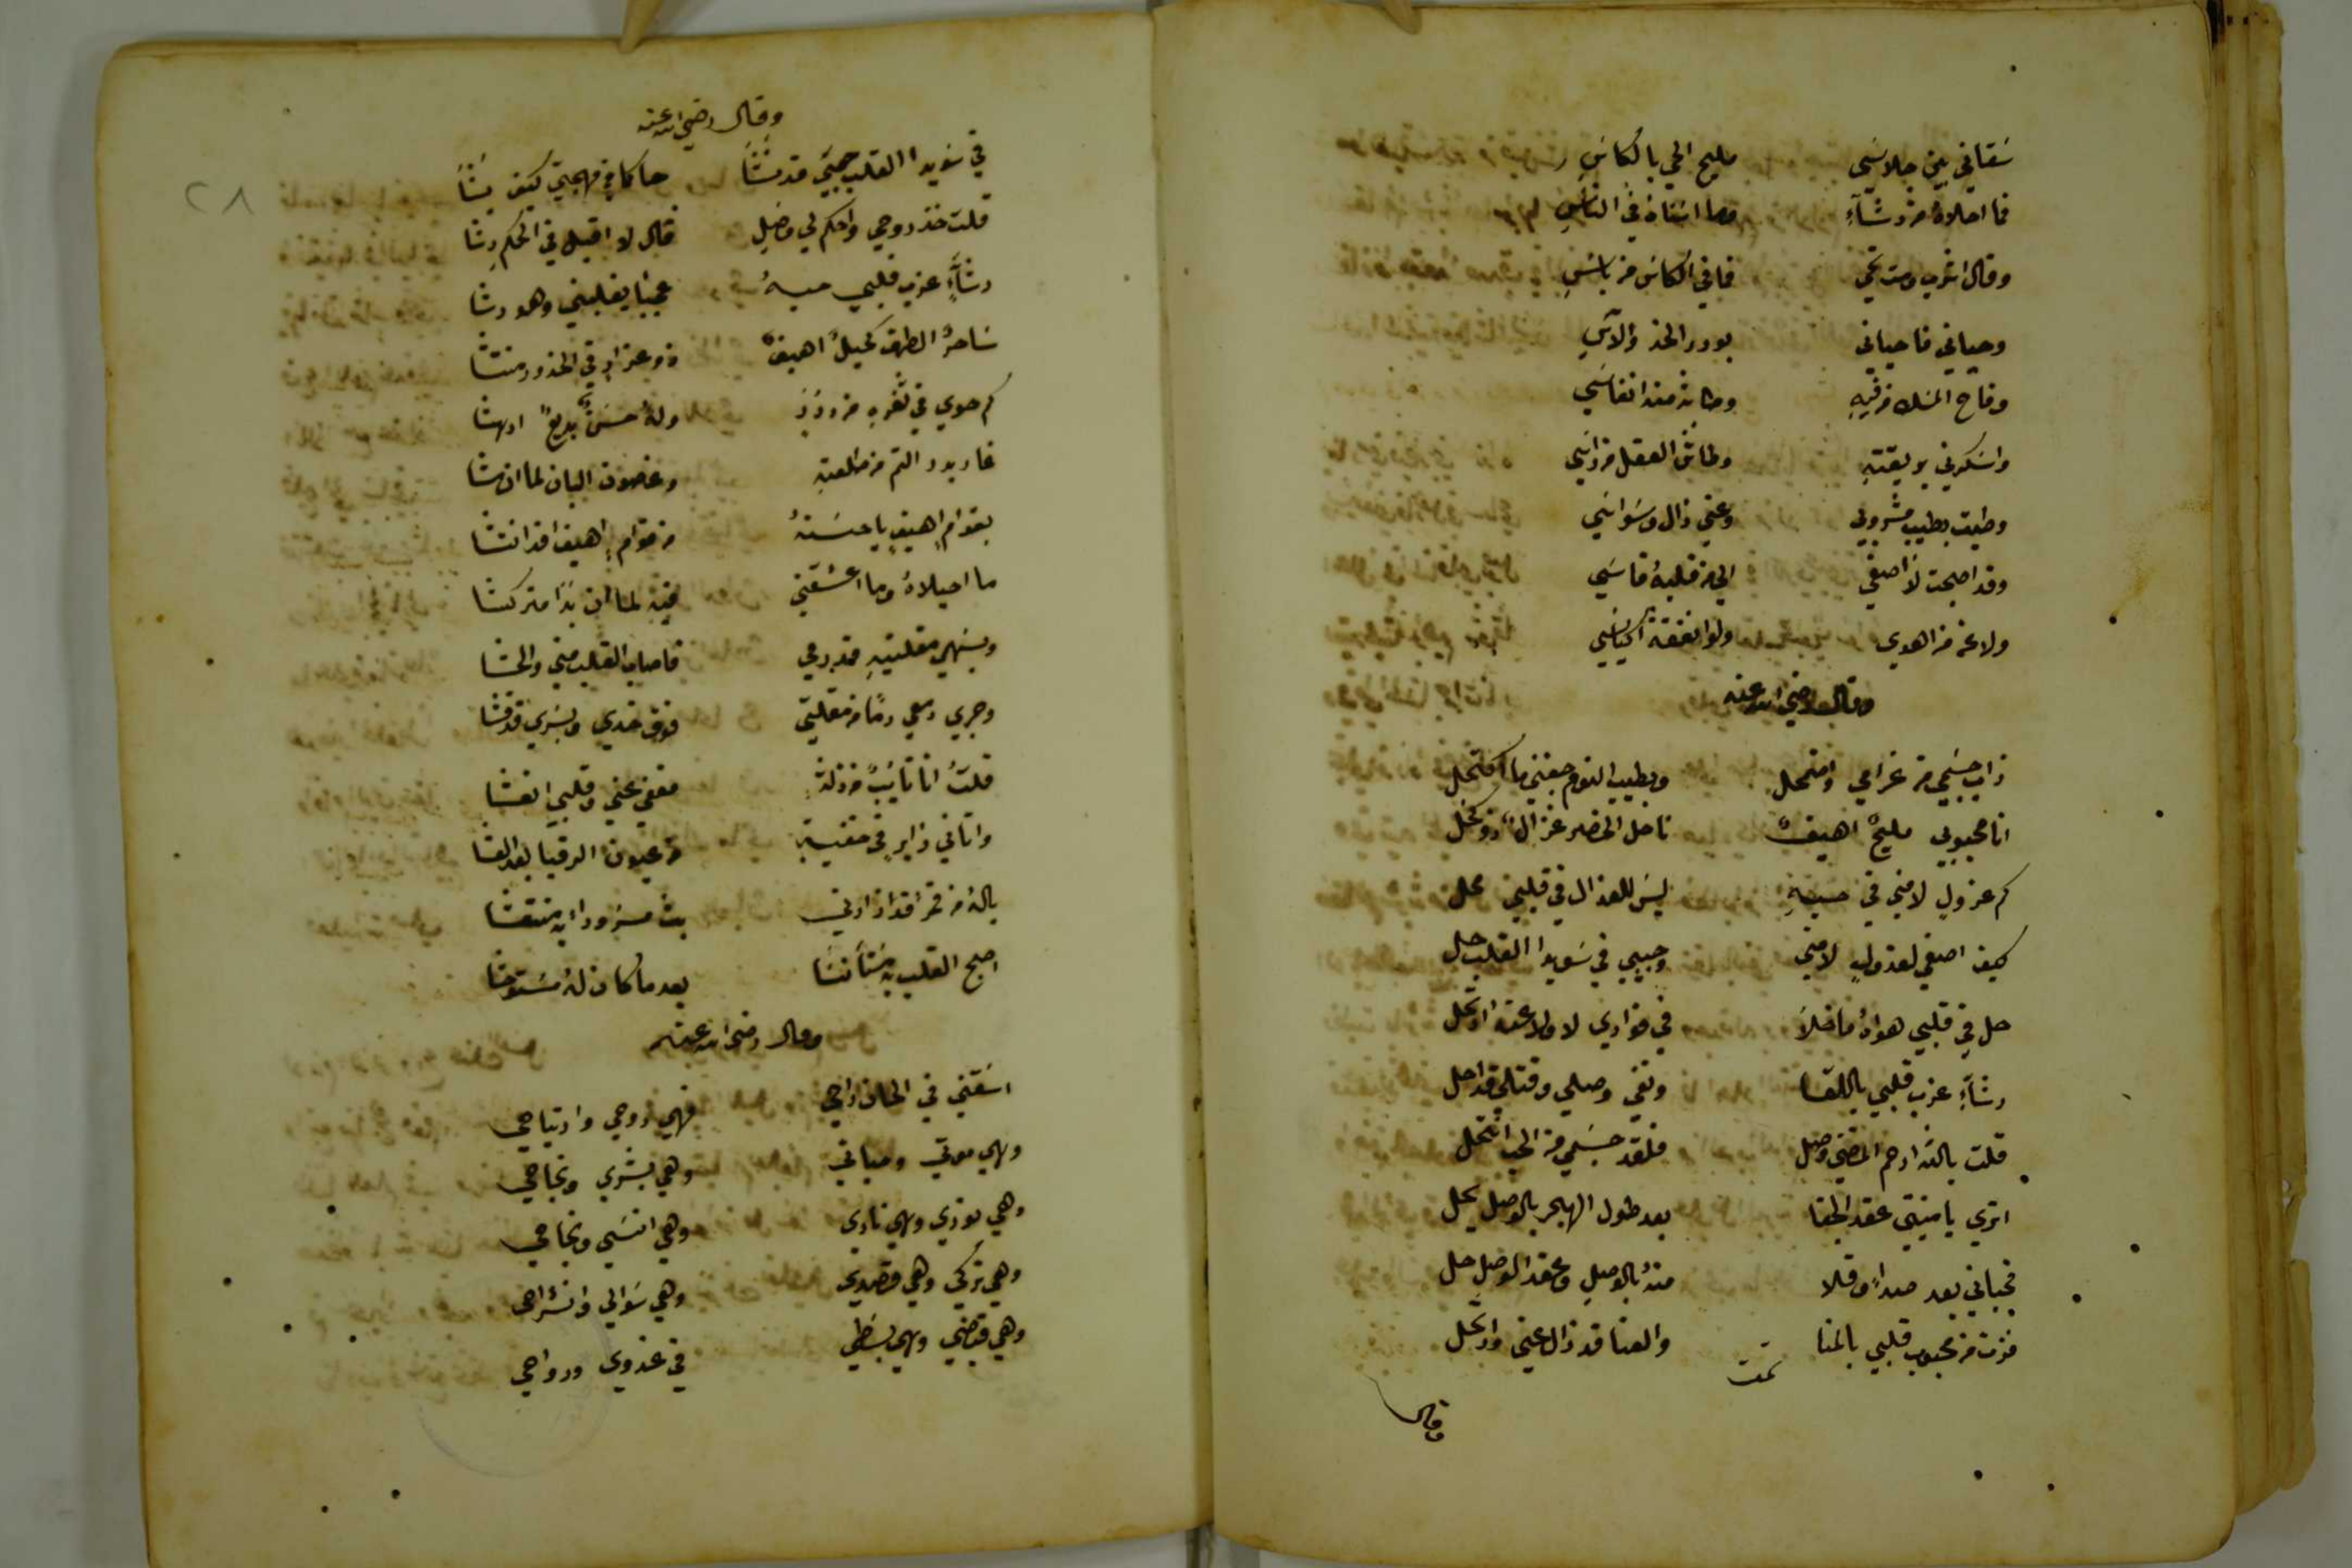 سَقاني بين جلاسَي مليح الحي بالكاسِ
فما احلاهُ من رشآءِ وما اسناهُ في الناسِ
وقال اشرب ومت تحي فما في الكاس من باسِ
وحياني فاحياني بورد الخد والآسِ
وفاح المسك من فيهِ وطابت منه انفاسَي
واسكرني بريقتهِ وطاش العقل من راسَي
وطبت بطيب مشروبي وعني زال وسواسَي
وقد اصبحت لا اصغي الي من قلبهُ قاسَي
ولا عمن اهوي ولو انفقت اكياسَي
وقال رضي الله عنه
ذاب جسَمي من غرامي وانتحل وبطيب النوم جفني ما اكتحل
انا محبوبي مليحٌ اهيفٌ ناحل الخصر غزالٌ ذو كحل
كم عزولٍ لامني في حبهِ ليسَ للعذال في قلبي محل
كيف اصغي لعذولٍ لامني وحبيبي في سَويدا القلب حل
حل في قلبي هواهُ ما خلا في فوادي لا ولا عنه ارتحل
رشآءِ عزب قلبي باللقا ونفي وصلي وقتلي قد احل
قلت بالله ارحم المضني وصل فلقد جسَمي من الحب انتحل
اتري يا منيتي عقد الجفا بعد طول الهجر بالوصل يحل
فحباني بعد صداٍ وقلا منهُ بالوصل وعقد الوصل حل
فزت من محبوب قلبي بالمنا والعنا قد زال عني وارتحل
تمت
وقال
٢٨
وقال رضي الله عنه
في سَويدا القلب حبيَ قد نشَا حاكما في مهجتي كيف يشَا
قلت خذ روحي واحكم لي وصِلِ قال لا اقبل في الحكم رِشا
رشآءٍ عزب قلبي حبهُ عجبًا يغلبني وهو رشا
سَاحرُ الطرف كحيلٌ اهيفٌ ذو عذارٍ في الخدود منتشا
كم حوي في ثغرهِ من دُررٍ ولهُ حسَنٌ بديعٌ ادهشا
غار بدر التم من طلعتهِ وغصون البان لما ان مشا
بقوامٍ اهيفٍ يا حسَنهُ من قوامٍ اهيف اذ انتشا
ما احيلاهُ وما اعشقني فيهِ لما ان بدَا متركشا
وبسَهمي مقلتيهِ قد رمي فاصاب القلب مني والحشا
وجري دمعي دمًا من مقلتي فوق خدي وبسَري قد فشا
قلتُ انا تايبٌ من زلةٍ فعفي عني وقلبي انعشا
واتاني زايرٍ في خفيةٍ من عيون الرقبا بعد العشا
يالهُ من قمر اقد زارني بت مسرورا به منتعشا
اصبح القلب بهِ مستأنسَا بعد ما كان لهُ مستوحشا
وقال رضي الله عنه
اسَقني في الحان راحي فهي روحي وارتياحي
وهي موتي وحياتي وهي بشري ونجاحي
وهي نوري وهي ناري وهي انسَي ونجاحي
وهي تركي وهي قصدي وهي سَوالي وانشراحي
وهي قبضي وهي بسَطي في غدوي ورواحي